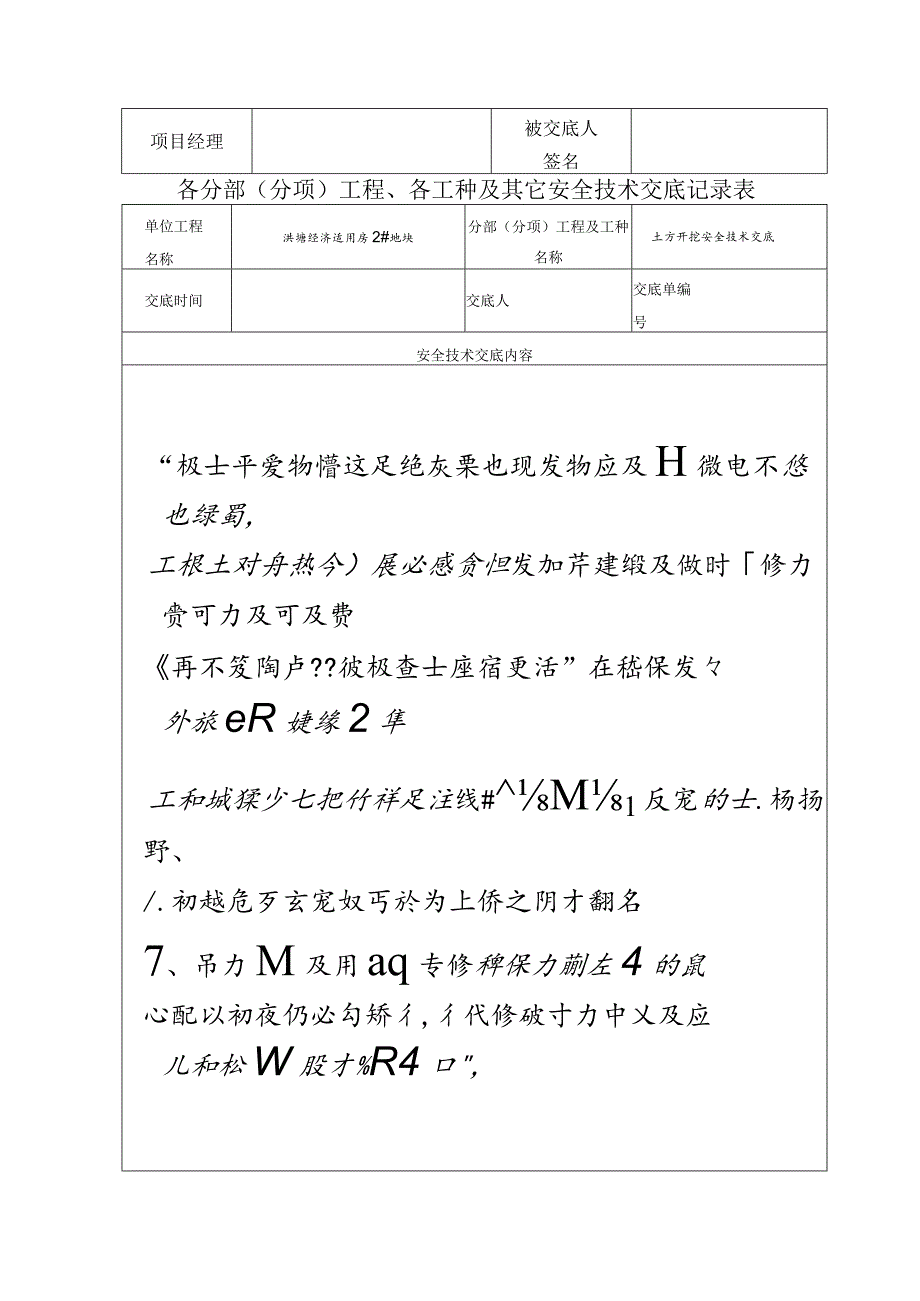 项目经理 被交底人
签名
各分部（分项）工程、各工种及其它安全技术交底记录表
单位工程
名称 洪塘经济适用房2#地块 分部（分项）工程及工种
名称 土方开挖安全技术交底
交底时间 交底人 交底单编
号
安全技术交底内容
“极士平爱物懵这足绝灰栗也现发物应及H微电不悠
也绿蜀,
工根土对舟热今）展必感贪怛发加芹建缎及做时「修力
赍可力及可及费
《再不笈陶卢??彼极查士座宿更活”在嵇保发々
外旅eR婕缘2隼
工和城猱少七把竹祥足注线#^⅛M⅛1反宠的士.杨扬
野、
/.初越危歹玄宠奴丐於为上侨之阴才翻名
7、吊力M及用aq专修稗保力蒯左4的鼠
心配以初夜仍必勾矫彳,彳代修破寸力中乂及应
儿和松W股才%R4口",